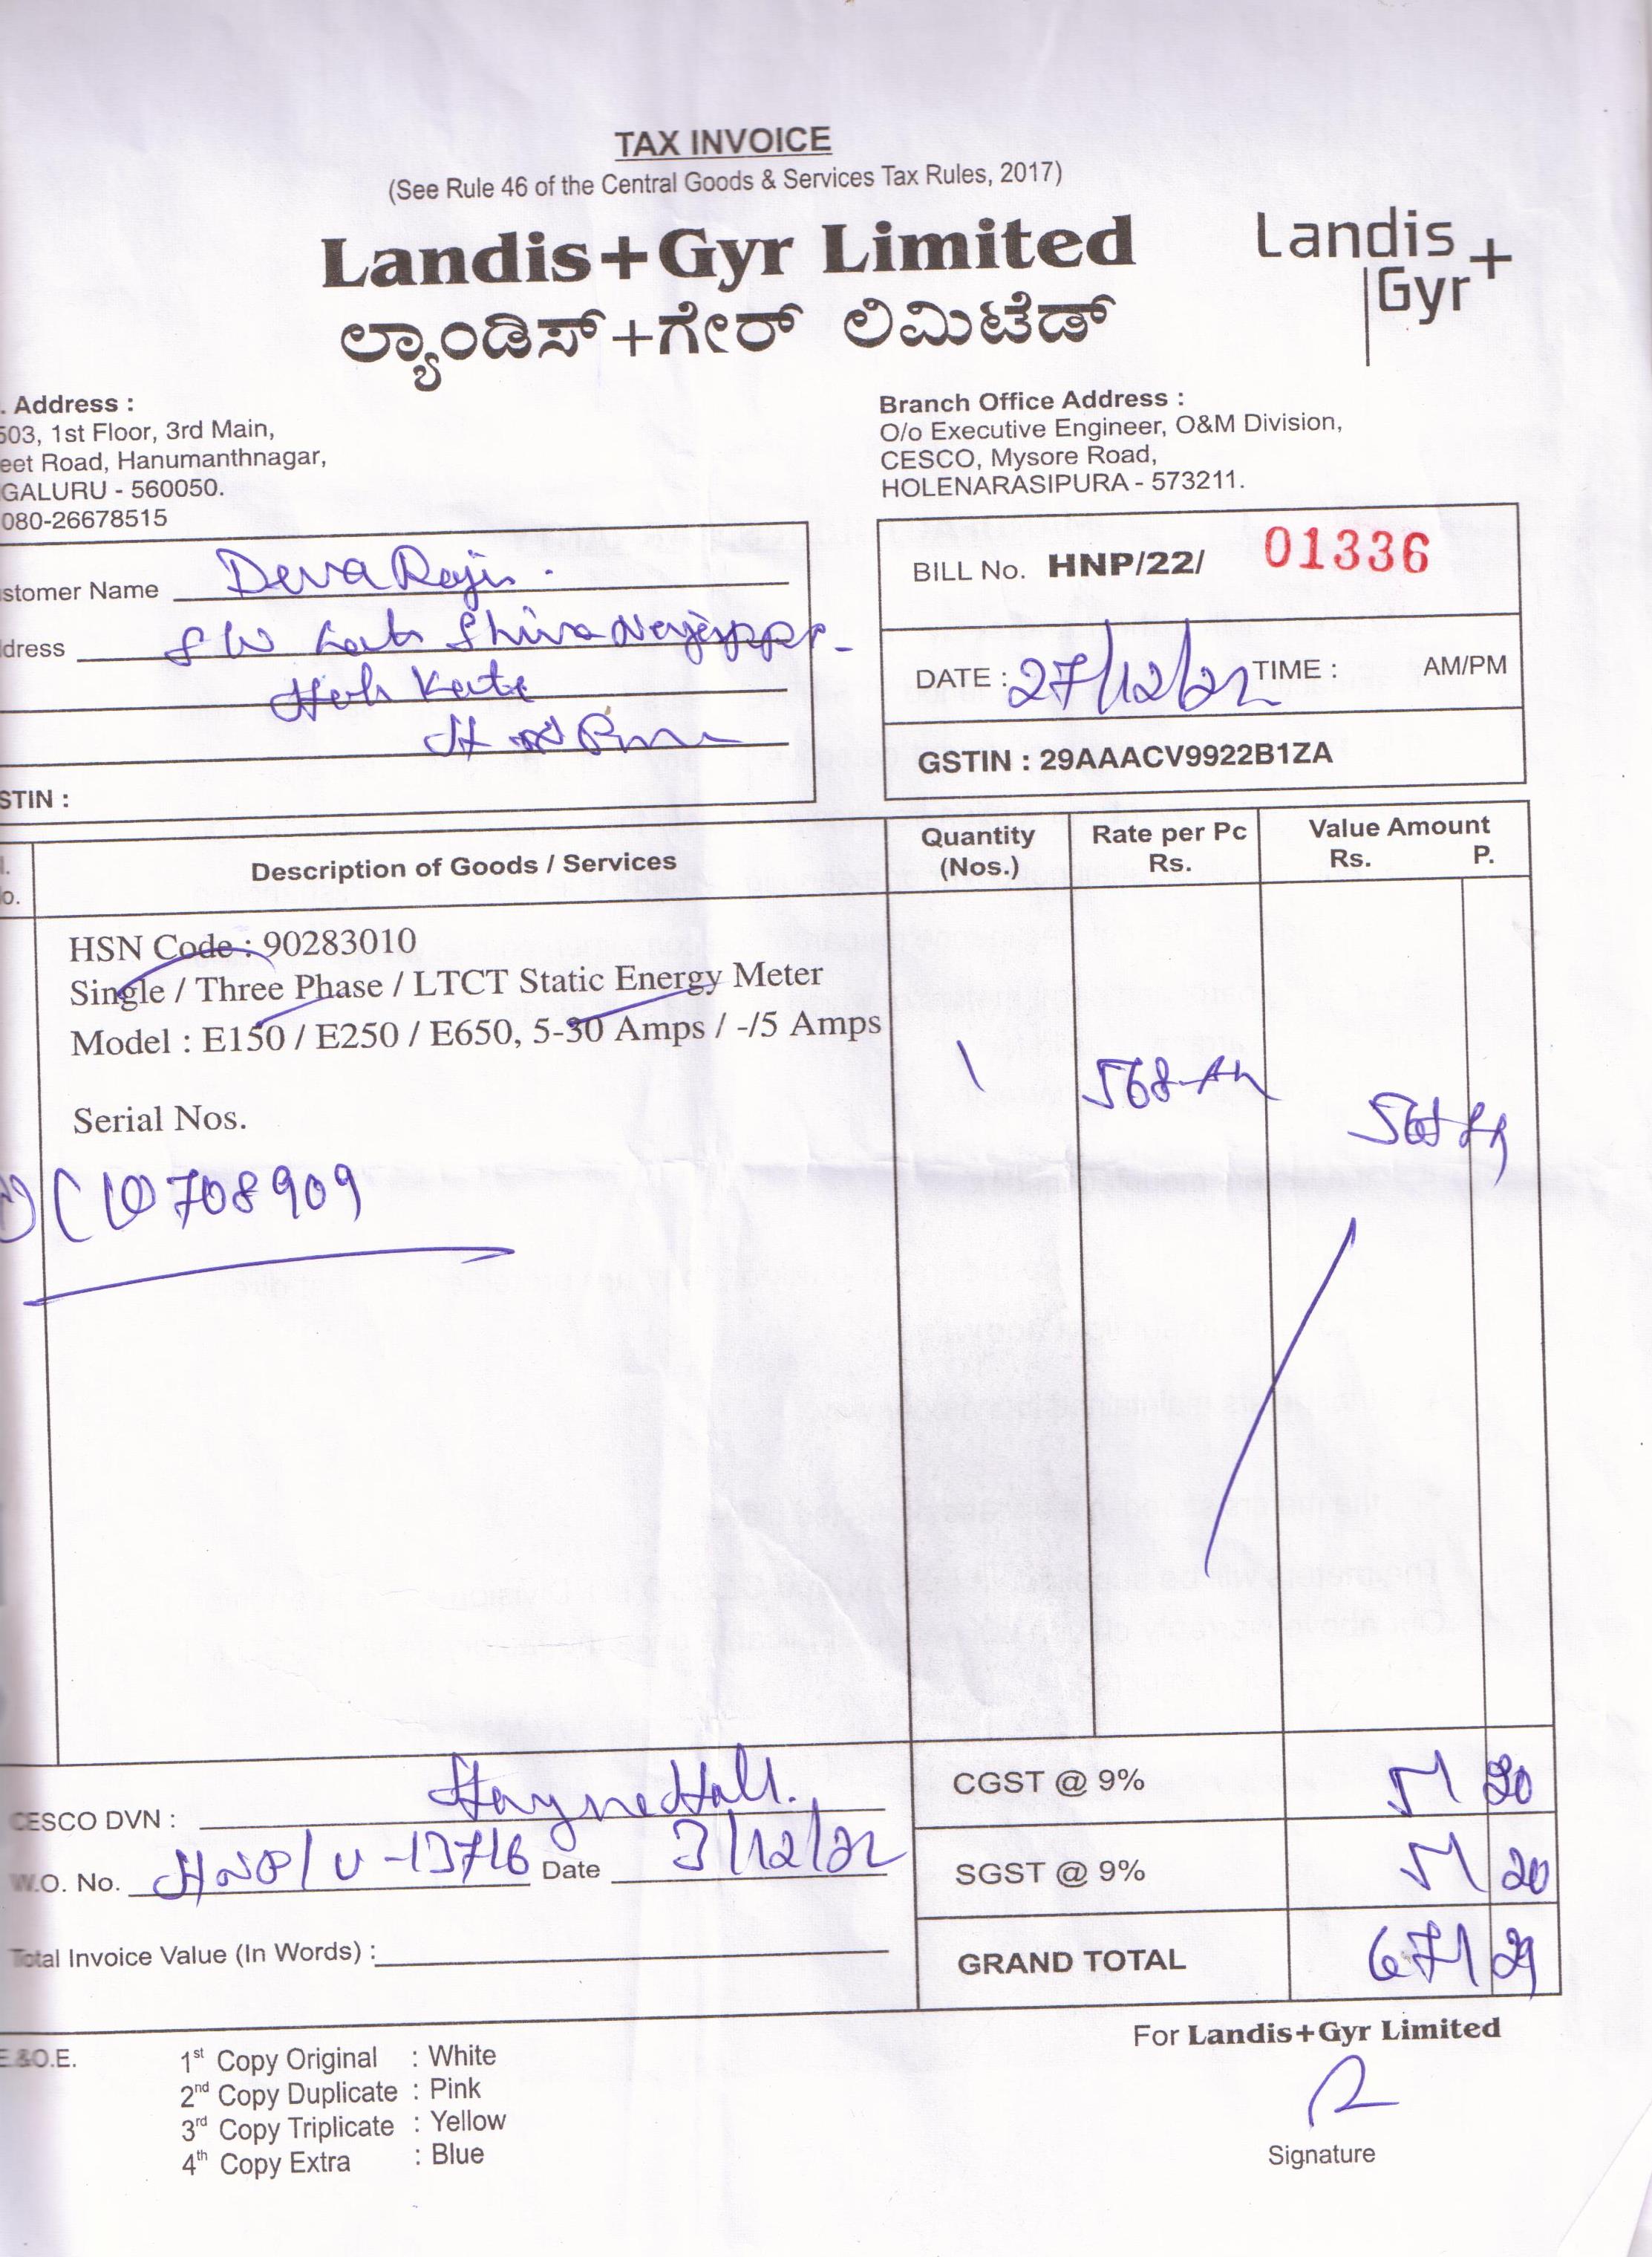 TAX INVOICE
(See Rule 46 of the Central Goods & Services Tax Rules, 2017)
Landis+Gyr Limited
Landis
Gyr+
ಲ್ಯಾಂಡಿಸ್+ಗೇರ್ ಲಿಮಿಟೆಡ್
. Address :
503, 1st Floor, 3rd Main,
eet Road, Hanumanthnagar,
GALURU - 560050.
080-26678515
Branch Office Address :
O/o Executive Engineer, O&M Division,
CESCO, Mysore Road,
HOLENARASIPURA - 573211.
stomer Name Deva Raju.
dress
STIN :
BILL No. HNP/22/ 01336
DATE : 27/12/22 TIME : AM/PM
GSTIN : 29AAACV9922B1ZA
Description of Goods / Services
Quantity
(Nos.)
Rate per Pc
Rs.
Value Amount
Rs. P.
HSN Code : 90283010
Single / Three Phase / LTCT Static Energy Meter
Model : E150 / E250 / E650, 5-30 Amps / -/5 Amps
1
Serial Nos.
708909
CESCO DVN :
W.O. No. Date
Total Invoice Value (In Words) :
CGST @ 9% 51 20
SGST @ 9% 51 20
GRAND TOTAL 671 29
E.&O.E.
1st Copy Original : White
2nd Copy Duplicate : Pink
3rd Copy Triplicate : Yellow
4th Copy Extra : Blue
For Landis+Gyr Limited
Signature